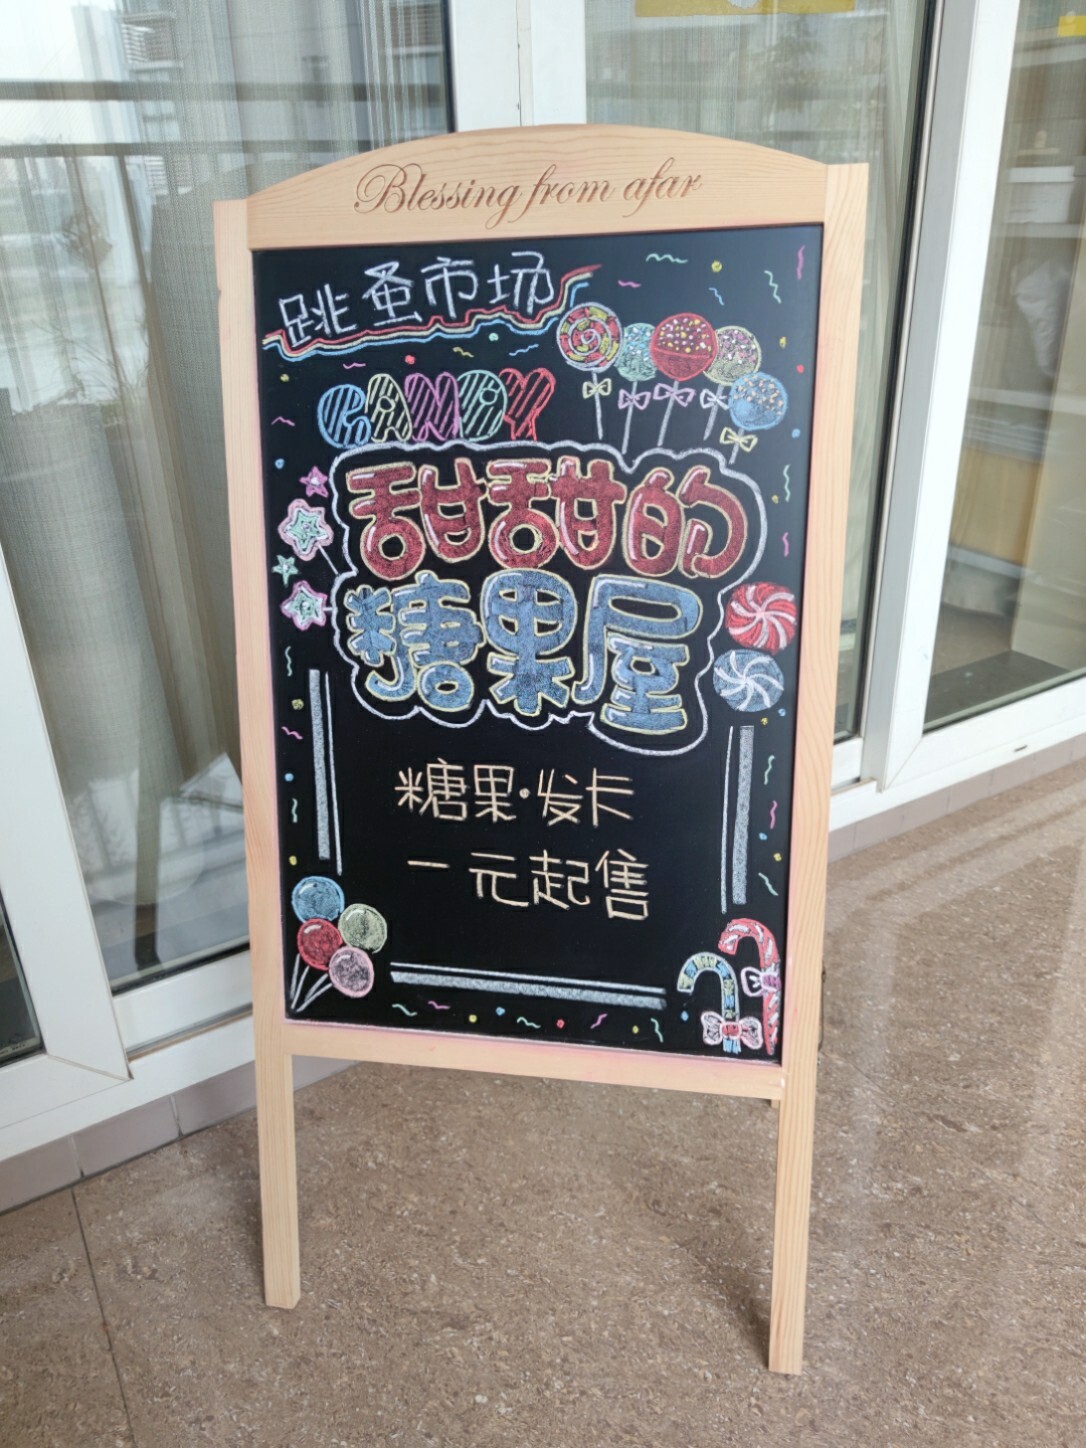 Blessing from afar
跳蚤市场
CANDY
甜甜的
糖果屋
糖果·发卡
一元起售